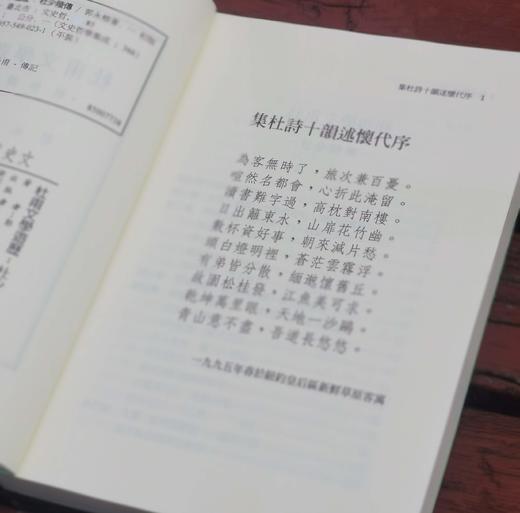 集杜詩十韻述懷代序 1
集杜詩十韻述懷代序
為客無時了，旅次兼百憂。
喧然名都會，心折此淹留。
讀書難字過，高枕對南樓。
日出籬東水，山扉花竹幽。
數杯資好事，朝來減片愁。
頭白燈明裡，蒼茫雲霧浮。
有弟皆分散，緬邈懷舊丘。
故園松桂發，江魚美可求。
乾坤萬里眼，天地一沙鷗。
青山意不盡，吾道長悠悠。
一九九五年春於紐約皇后區新鮮草原客寓
957-549-023-1（平裝）
傳記
文史
杜甫文學遊歷